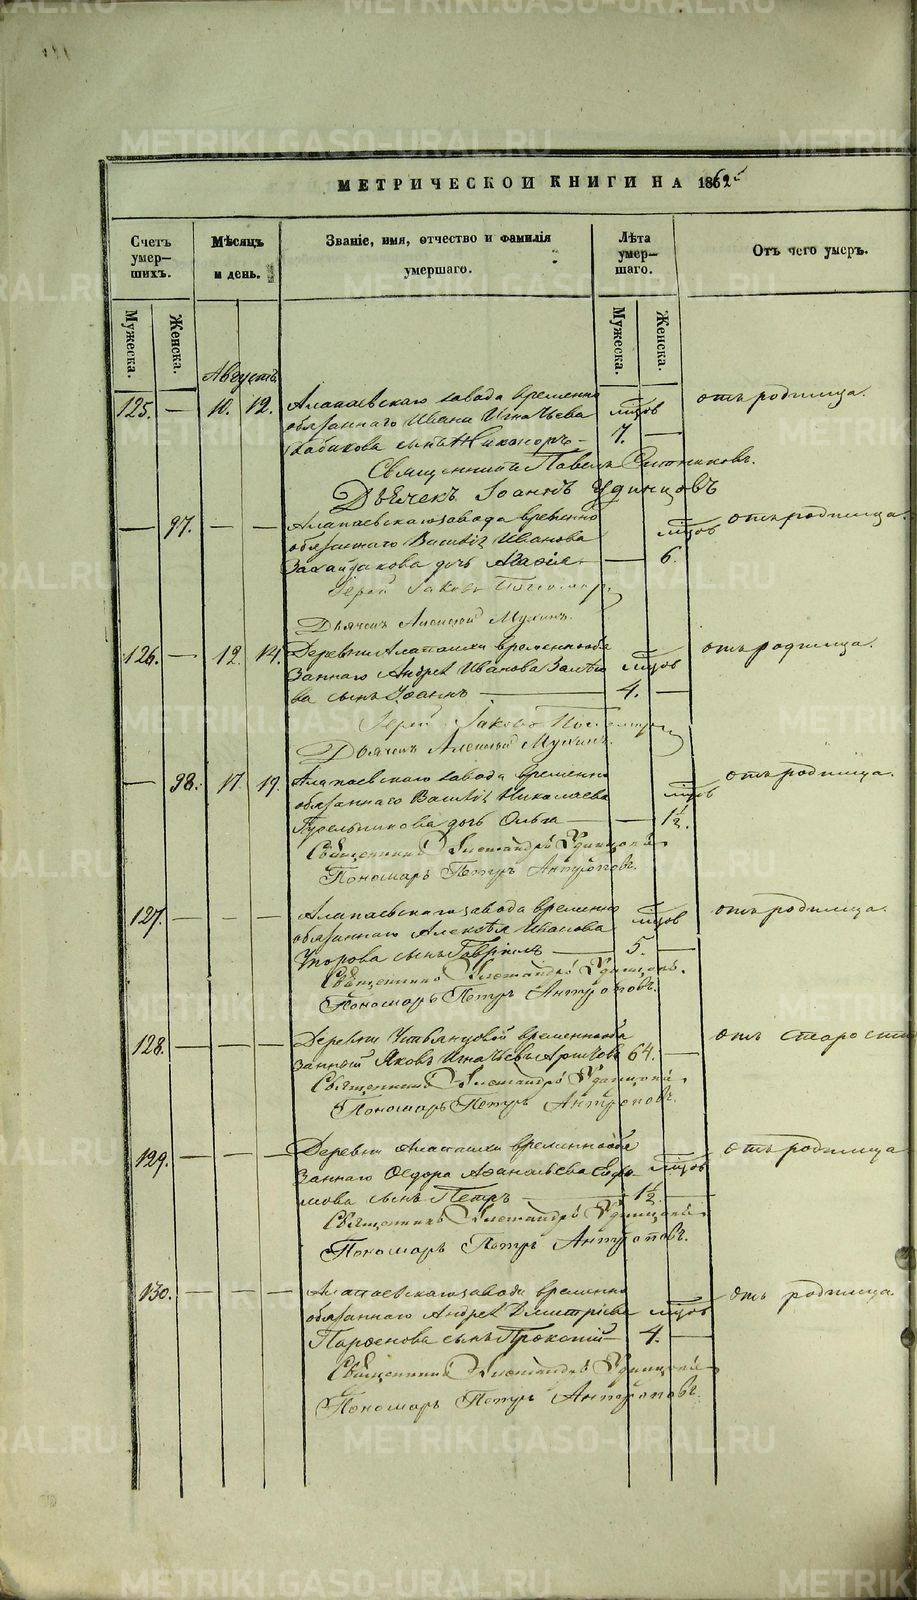 МЕТРИЧЕСКОЙ КНИГИ НА 1865
Счетъ умер-шихъ.
Мѣсяцъ и день.
Званіе, имя, отчество и фамилія умершаго.
Лѣта умер-шаго.
Отъ чего умеръ.
Мужеска.
Женска.
Мужеска.
Женска.
Августъ.
125. — 10. 12. Алапаевскаго завода временно отъ родимца.
обязаннаго Ивана Игнатьева мцов
сынъ Никаноръ — 7. —
Священникъ Павелъ
Дьячекъ Іоаннъ Удинцовъ
— 97. — — Алапаевскаго завода временно отъ родимца.
обязаннаго Василія Иванова мцов
дочь Марія — — 6.
Іерей Іаковъ
Дьячекъ Алексій Мухинъ.
126. — 12. 14. Деревни Алапашки временнообя отъ родимца.
заннаго Андрея Иванова мцов
ва сынъ Іоаннъ — 4. —
Іерей Іаковъ
Дьячекъ Алексій Мухинъ.
— 98. 17. 19. Алапаевскаго завода временно отъ родимца.
обязаннаго Василія Николаева мцов
дочь Ольга — — 1½.
Священникъ Александръ Удинцовъ
Пономарь Петръ Антроповъ.
127. — — — Алапаевскаго завода временно отъ родимца.
обязаннаго Алексѣя Иванова мцов
Упорова сынъ Гавріилъ — 5. —
Священникъ Александръ Удинцовъ.
Пономарь Петръ Антроповъ.
128. — — — Деревни временнообя отъ старости
занный Яковъ Игнатьевъ 64. —
Священникъ Александръ Удинцовъ.
Пономарь Петръ Антроповъ.
129. — — — Деревни Алапашки временнообя отъ родимца
заннаго Ѳедора Аѳанасьева Ефи мцов
мова сынъ Петръ — 1½ —
Священникъ Александръ Удинцовъ
Пономарь Петръ Антроповъ.
130. — — — Алапаевскаго завода временно отъ родимца.
обязаннаго Андрея Димитріева мцов
Парѳенова сынъ Прокопій — 4. —
Священникъ Александръ Удинцовъ
Пономарь Петръ Антроповъ.
METRIKI.GASO-URAL.RU